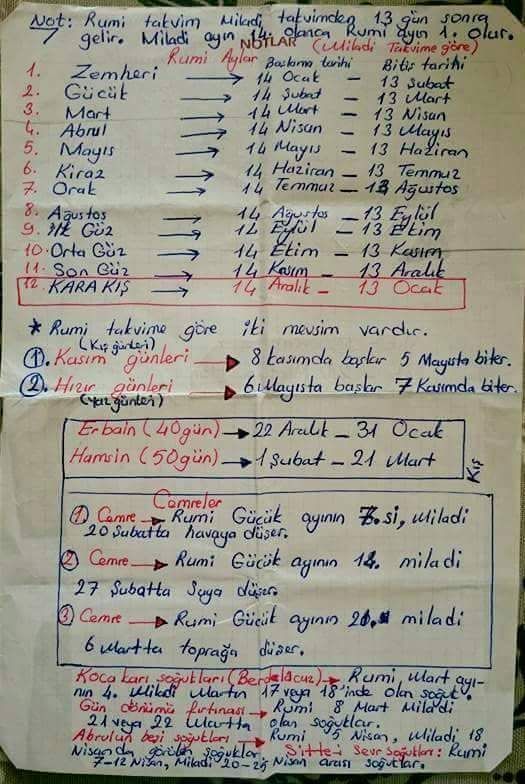 Not: Rumi takvim Miladi takvimden 13 gün sonra
gelir. Miladi ayın 14. olanca Rumi ayın 1. olur.
NOTLAR
Rumi Aylar Başlama tarihi (Miladi Takvime göre) Bitiş tarihi
1. Zemheri → 14 Ocak - 13 Şubat
2. Gücük → 14 Şubat - 13 Mart
3. Mart → 14 Mart - 13 Nisan
4. Abrul → 14 Nisan - 13 Mayıs
5. Mayıs → 14 Mayıs - 13 Haziran
6. Kiraz → 14 Haziran - 13 Temmuz
7. Orak → 14 Temmuz - 13 Ağustos
8. Ağustos → 14 Ağustos - 13 Eylül
9. İlk Güz → 14 Eylül - 13 Ekim
10. Orta Güz → 14 Ekim - 13 Kasım
11. Son Güz → 14 Kasım - 13 Aralık
12. KARA KIŞ → 14 Aralık - 13 Ocak
* Rumi takvime göre iki mevsim vardır.
(Kış günleri)
1. Kasım günleri → 8 kasımda başlar 5 Mayısta biter.
2. Hızır günleri → 6 Mayısta başlar 7 Kasımda biter.
(Yaz günleri)
Erbain (40 gün) → 22 Aralık - 31 Ocak
Hamsin (50 gün) → 1 Şubat - 21 Mart
Kış
Cemreler
1 Cemre → Rumi Gücük ayının 7.si, Miladi
20 Şubatta havaya düşer.
2 Cemre → Rumi Gücük ayının 14. miladi
27 Şubatta Suya düşer.
3 Cemre → Rumi Gücük ayının 21. miladi
6 Martta toprağa düşer.
Koca karı soğukları (Berdelacuz) → Rumi Mart ayı-
nın 4. Miladi Martın 17 veya 18'inde olan soğuk.
Gün dönümü fırtınası → Rumi 8 Mart Miladi
21 veya 22 Martta olan soğuklar.
Abrulun beşi soğukları → Rumi 5 Nisan, Miladi 18
Nisanda görülen soğuklar. Sitte-i Sevr soğukları: Rumi
7-12 Nisan, Miladi 20-25 Nisan arası soğuklar.